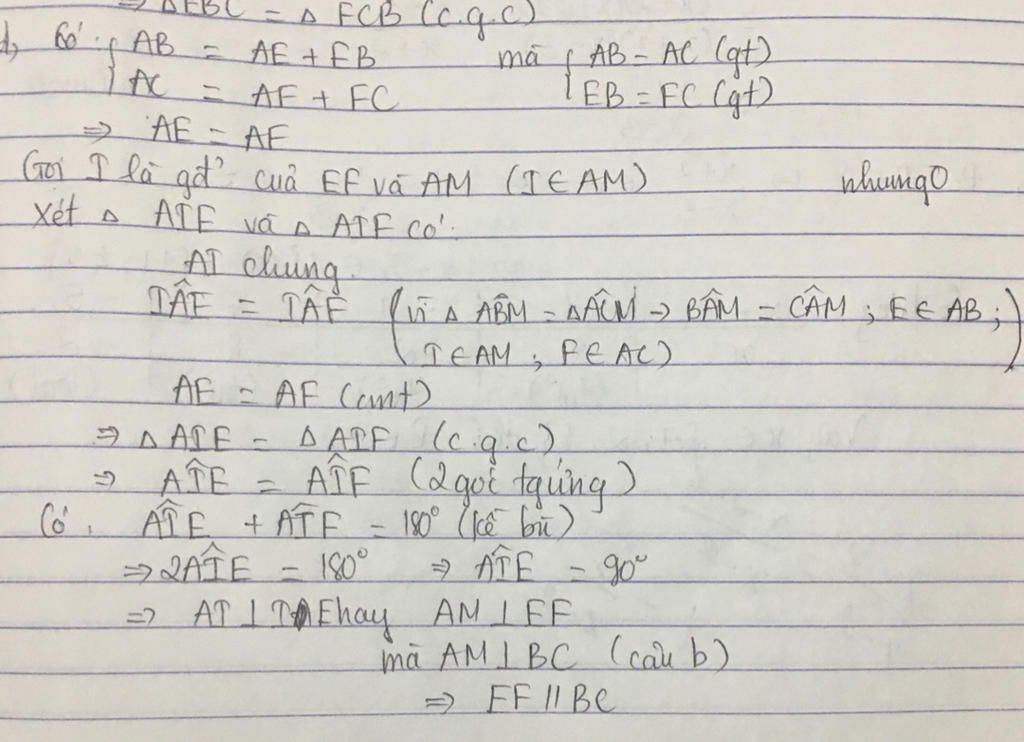 ⇒ ΔEBC = Δ FCB (c.g.c)
d, Có: { AB = AE + EB mà { AB = AC (gt)
AC = AF + FC EB = FC (gt)
⇒ AE = AF
Gọi I là gđ' của EF và AM (I ∈ AM) nhưungO
Xét Δ AIE và Δ AIF có:
AI chung.
IÂE = IÂF (vì Δ ABM = ΔACM → BÂM = CÂM ; E ∈ AB ;
I ∈ AM ; F ∈ AC)
AE = AF (cmt)
⇒ Δ AIE = Δ AIF (c.g.c)
⇒ AÎE = AÎF (2 góc tg ứng)
Có. AÎE + AÎF = 180° (kề bù)
⇒ 2AÎE = 180° ⇒ AÎE = 90°
⇒ AI ⊥ IE hay AM ⊥ EF
mà AM ⊥ BC (câu b)
⇒ EF // BC